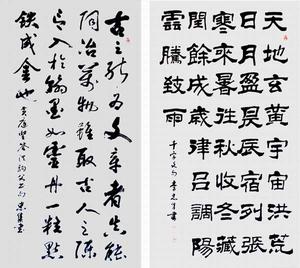 天地玄黃宇宙洪荒
日月盈昃辰宿列張
寒來暑往秋收冬藏
閏餘成歲律呂調陽
雲騰致雨
千字文句
古之能為文章者真能
陶冶萬物雖取古人之陳
言入於翰墨如靈丹一粒點
鐵成金也